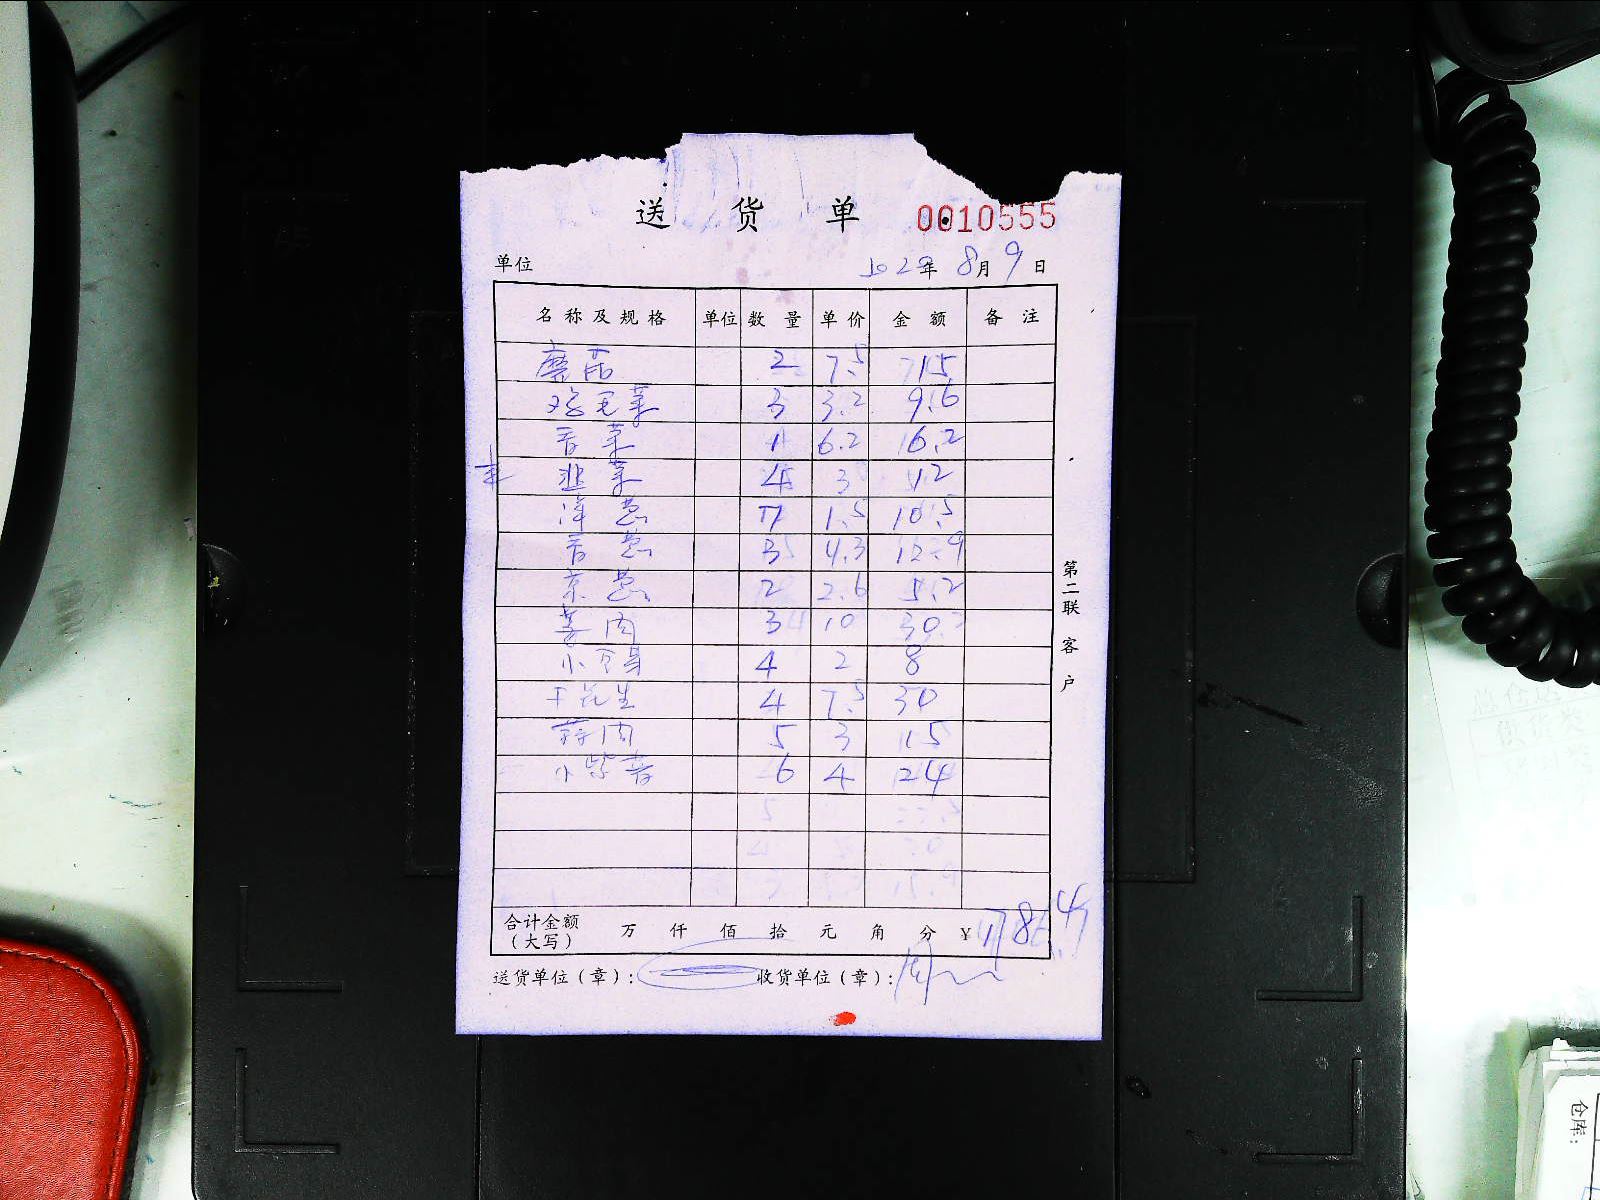 送 货 单 0010555
单位 2029年 8月 9日
名称及规格 单位 数量 单价 金额 备注
蘑菇 2 7.5 15
鸡毛菜 3 3.2 9.6
香菜 1 6.2 6.2
韭菜 4 3 12
洋葱 7 1.5 10.5
香葱 3 4.3 12.9
京葱 2 2.6 5.2
姜肉 3 10 30
4 2 8
干花生 4 7.5 30
蒜肉 5 3 15
小紫薯 6 4 24
合计金额（大写） 万 仟 佰 拾 元 角 分 ￥178.4
送货单位（章）： 收货单位（章）：
第二联 客户
仓库：